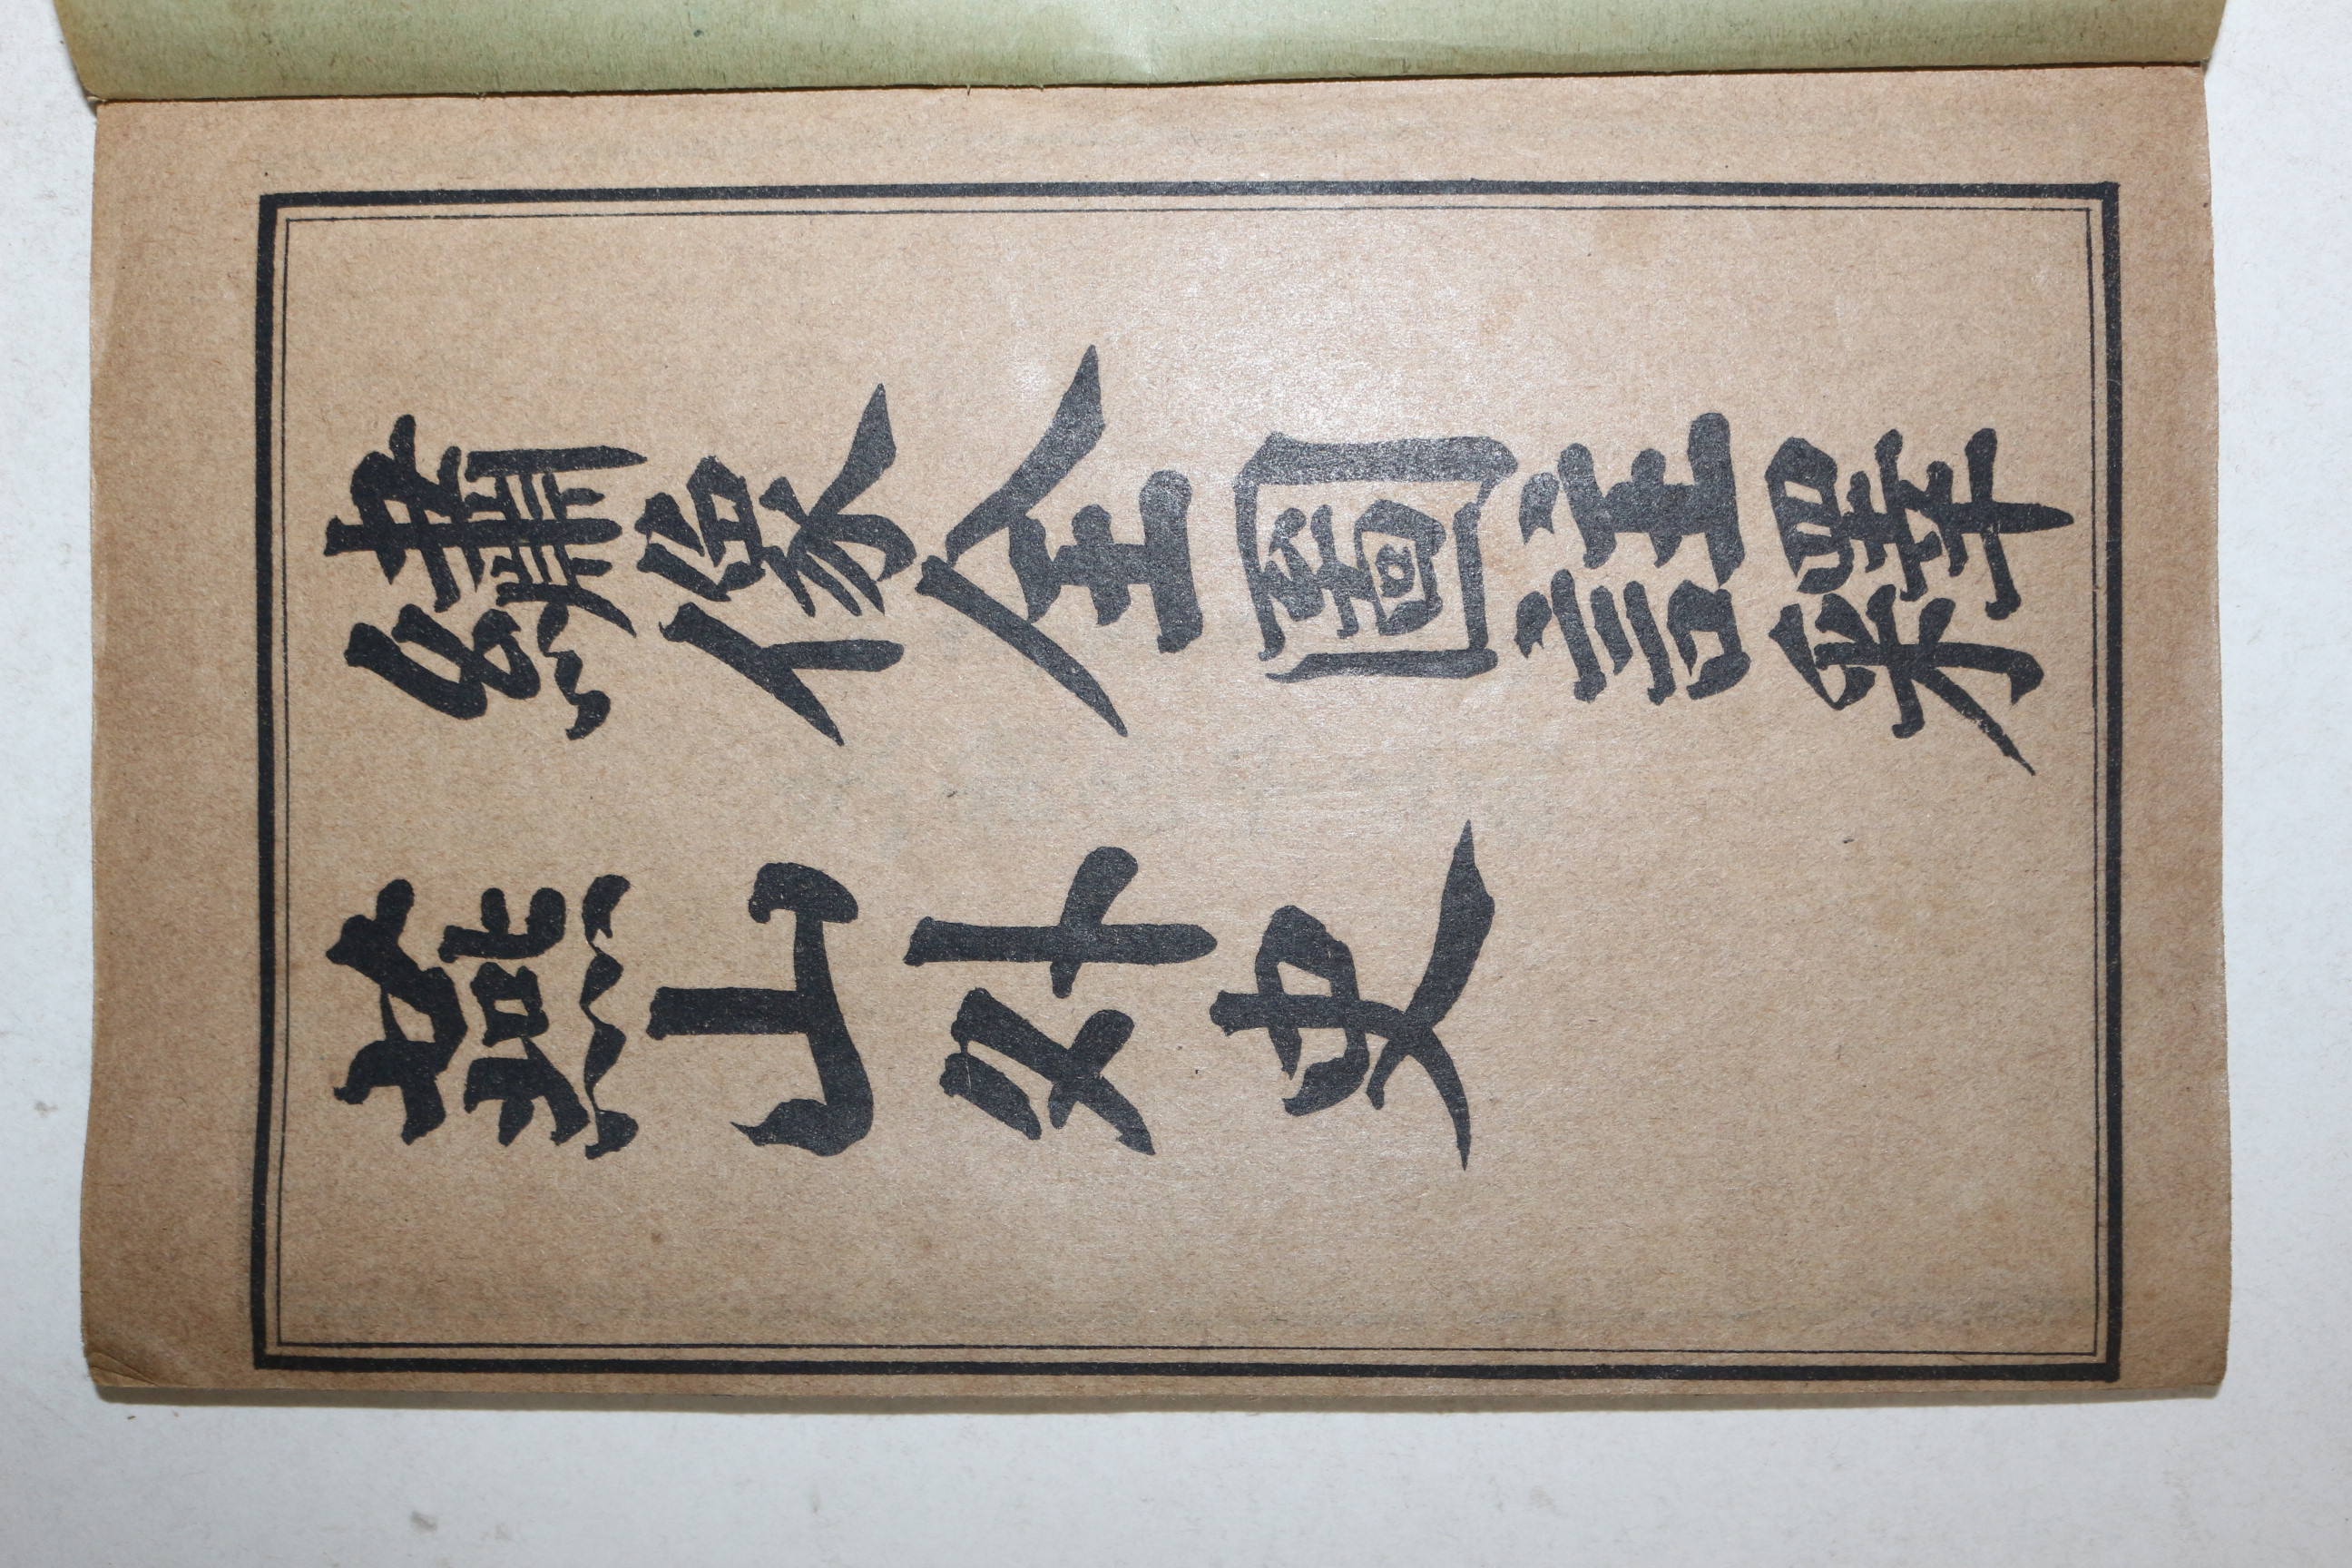 繡像全圖註釋
燕山外史